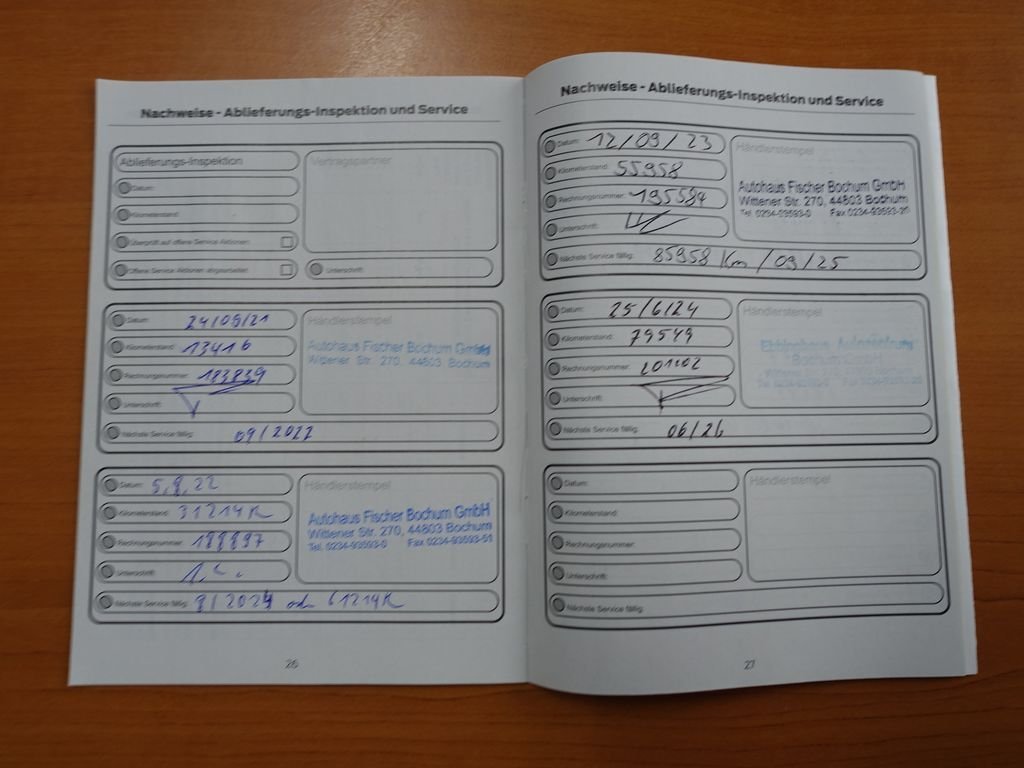 Nachweise - Ablieferungs-Inspektion und Service
Ablieferungs-Inspektion
Vertragspartner
Datum:
Kilometerstand:
Überprüft auf offene Service Aktionen:
Offene Service Aktionen abgearbeitet:
Unterschrift:
Datum: 24/09/21
Händlerstempel
Kilometerstand: 13416
Autohaus Fischer Bochum GmbH
Wittener Str. 270, 44803 Bochum
Rechnungsnummer: 183839
Unterschrift:
Nächste Service fällig: 09/2022
Datum: 5.8.22
Händlerstempel
Kilometerstand: 31214K
Autohaus Fischer Bochum GmbH
Wittener Str. 270, 44803 Bochum
Tel. 0234-93593-0 Fax 0234-93593-51
Rechnungsnummer: 188897
Unterschrift:
Nächste Service fällig: 8/2024 od 61214K
26
Nachweise - Ablieferungs-Inspektion und Service
Datum: 12/09/23
Händlerstempel
Kilometerstand: 55958
Autohaus Fischer Bochum GmbH
Rechnungsnummer: 195584
Wittener Str. 270, 44803 Bochum
Tel. 0234-93593-0 Fax 0234-93593-20
Unterschrift:
Nächste Service fällig: 85958 Km /09/25
Datum: 25/6/24
Händlerstempel
Kilometerstand: 79549
Bochum GmbH
Rechnungsnummer: 201102
Unterschrift:
Nächste Service fällig: 06/26
Datum:
Händlerstempel
Kilometerstand:
Rechnungsnummer:
Unterschrift:
Nächste Service fällig:
27